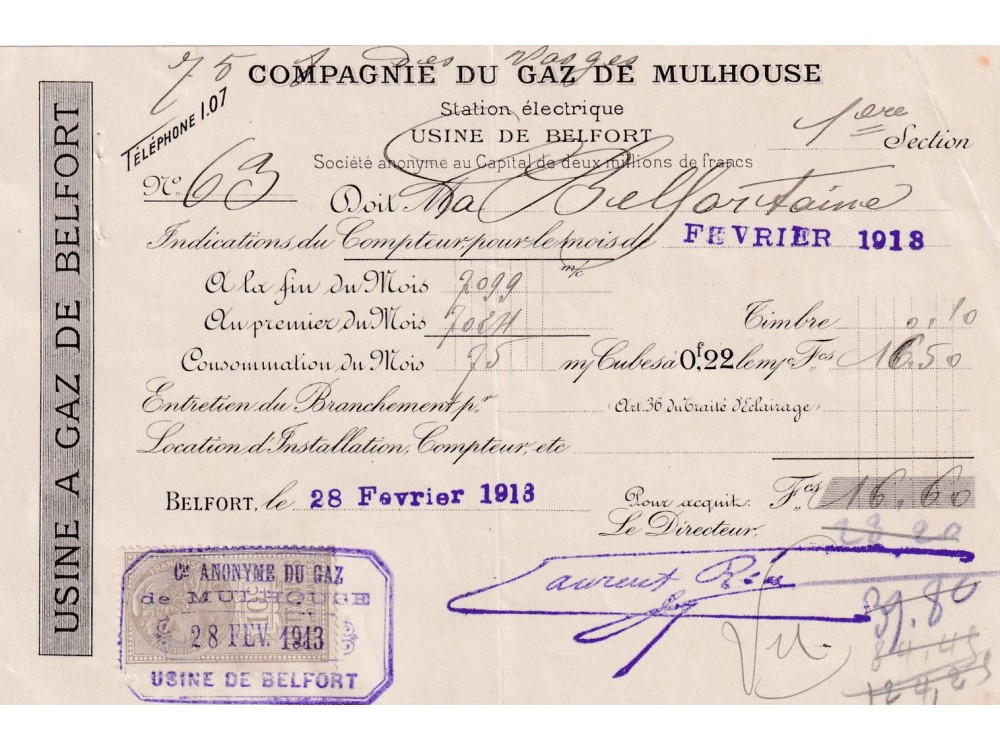 75 F des Vosges
COMPAGNIE DU GAZ DE MULHOUSE
TÉLÉPHONE 1.07
Station électrique
USINE DE BELFORT
1ère Section
Société anonyme au Capital de deux millions de francs
No. 63
Doit La Belfortaine
Indications du Compteur pour le mois de FEVRIER 1913
m/c
A la fin du Mois 7099
Au premier du Mois 7024
Timbre 0,10
Consommation du Mois 75 m/ Cubes à 0f,22 le mc Fcs 16.50
Entretien du Branchement pr (Art. 36 du Traité d'Eclairage)
Location d'Installation, Compteur, etc
BELFORT, le 28 Fevrier 1913
Pour acquit: Fcs 16,60
Le Directeur,
23.20
Laurent
39.80
84,45
124,25
Vu
Cie ANONYME DU GAZ
de MULHOUSE
28 FEV. 1913
USINE DE BELFORT
USINE A GAZ DE BELFORT